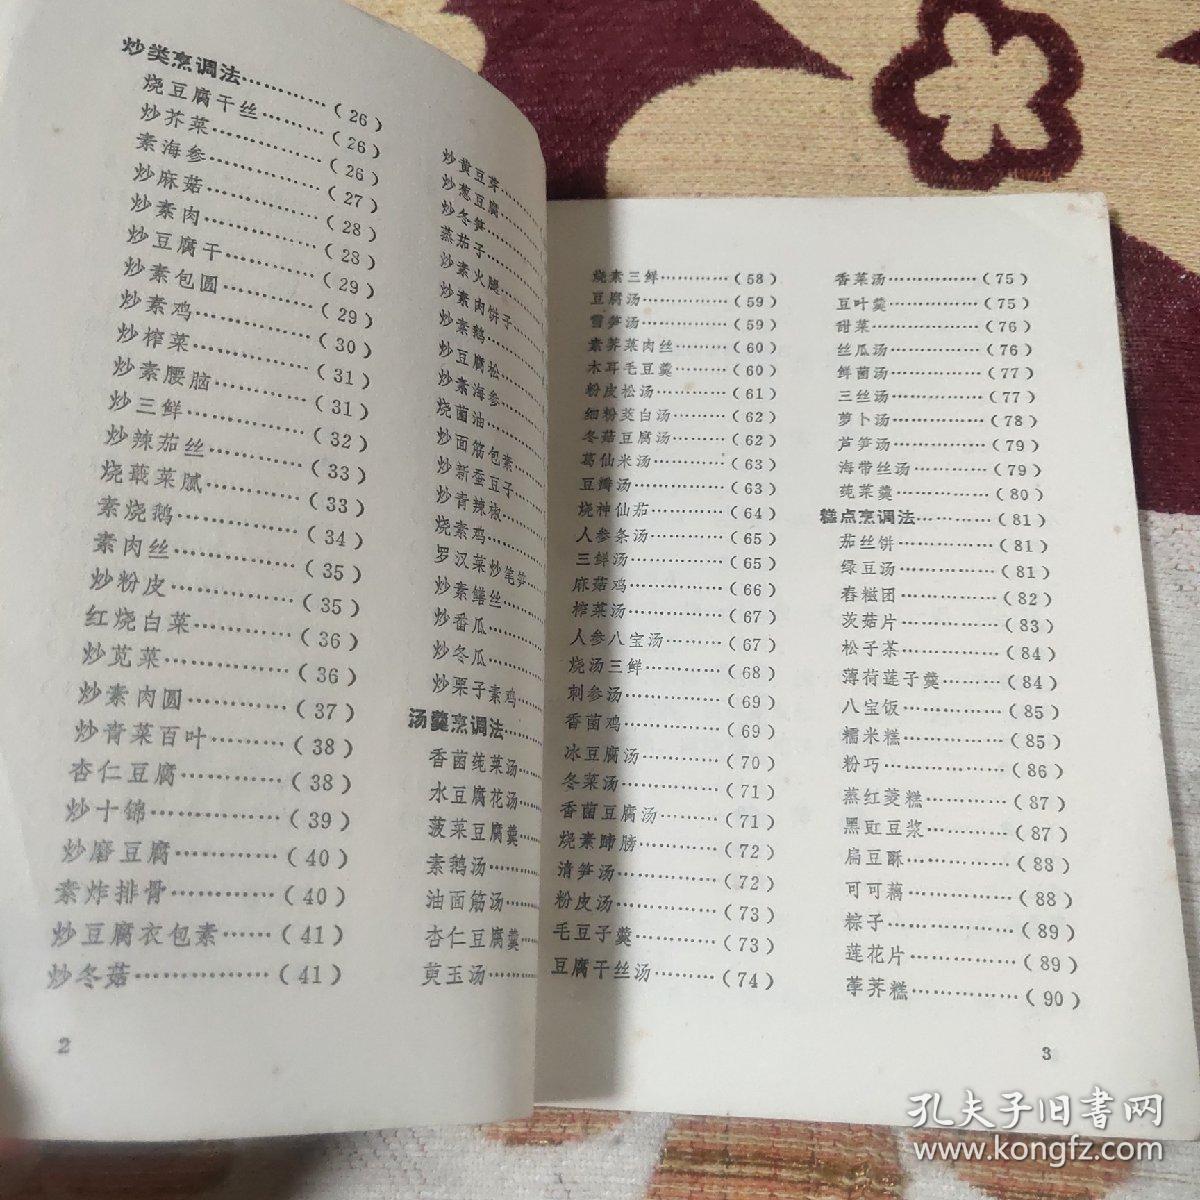 炒类烹调法…………(26)
烧豆腐干丝………(26)
炒芥菜……………(26)
素海参……………(27)
炒麻菇……………(28)
炒素肉……………(28)
炒豆腐干…………(29)
炒素包圆…………(29)
炒素鸡……………(30)
炒榨菜……………(31)
炒素腰脑…………(31)
炒三鲜……………(32)
炒辣茄丝…………(33)
烧蕺菜腻…………(33)
素烧鹅……………(34)
素肉丝……………(35)
炒粉皮……………(35)
红烧白菜…………(36)
炒苋菜……………(36)
炒素肉圆…………(37)
炒青菜百叶………(38)
杏仁豆腐…………(38)
炒十锦……………(39)
炒磨豆腐…………(40)
素炸排骨…………(40)
炒豆腐衣包素……(41)
炒冬菇……………(41)
2
炒黄豆芽……
炒葱豆腐……
炒冬笋……
蒸茄子……
炒素火腿……
炒素肉饼子……
炒素鹅……
炒豆腐松……
炒素海参……
烧菌油……
炒面筋包素……
炒新蚕豆子……
炒青辣椒……
烧素鸡……
罗汉菜炒笔笋……
炒素鳝丝……
炒番瓜……
炒冬瓜……
炒栗子素鸡……
汤羹烹调法……
香菌莼菜汤……
水豆腐花汤……
菠菜豆腐羹……
素鹅汤……
油面筋汤……
杏仁豆腐羹……
萸玉汤……
烧素三鲜…………(58)
豆腐汤……………(59)
雪笋汤……………(59)
素荠菜肉丝………(60)
木耳毛豆羹………(60)
粉皮松汤…………(61)
细粉茭白汤………(62)
冬菇豆腐汤………(62)
葛仙米汤…………(63)
豆瓣汤……………(63)
烧神仙茄…………(64)
人参条汤…………(65)
三鲜汤……………(65)
麻菇鸡……………(66)
榨菜汤……………(67)
人参八宝汤………(67)
烧汤三鲜…………(68)
刺参汤……………(69)
香菌鸡……………(69)
冰豆腐汤…………(70)
冬菜汤……………(71)
香菌豆腐汤………(71)
烧素蹄膀…………(72)
清笋汤……………(72)
粉皮汤……………(73)
毛豆子羹…………(73)
豆腐干丝汤………(74)
香菜汤……………(75)
豆叶羹……………(75)
甜菜………………(76)
丝瓜汤……………(76)
鲜菌汤……………(77)
三丝汤……………(77)
萝卜汤……………(78)
芦笋汤……………(79)
海带丝汤…………(79)
莼菜羹……………(80)
糕点烹调法…………(81)
茄丝饼……………(81)
绿豆汤……………(81)
春糍团……………(82)
茨菇片……………(83)
松子茶……………(84)
薄荷莲子羹………(84)
八宝饭……………(85)
糯米糕……………(85)
粉巧………………(86)
蒸红菱糕…………(87)
黑豇豆浆…………(87)
扁豆酥……………(88)
可可藕……………(88)
粽子………………(89)
莲花片……………(89)
荸荠糕……………(90)
3
孔夫子旧书网
www.kongfz.com